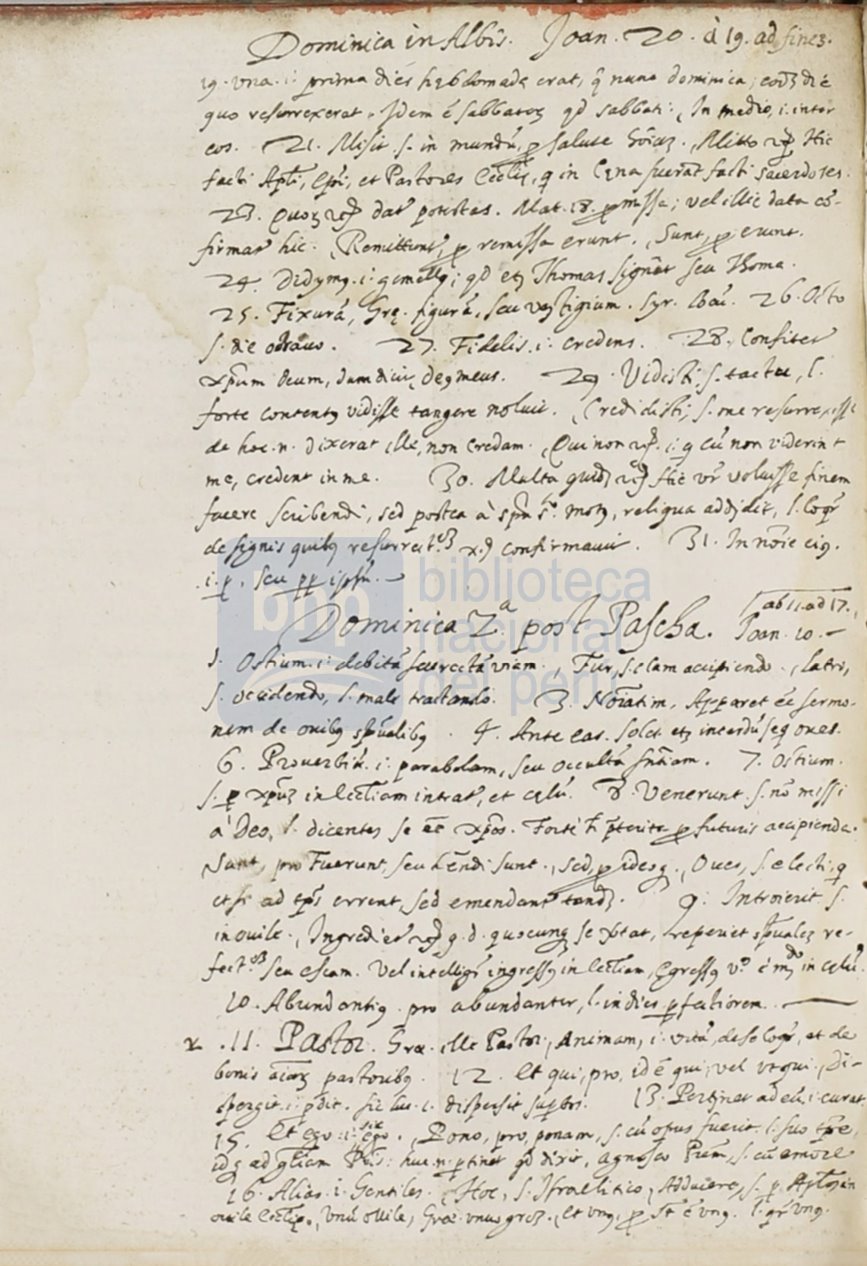 Dominica in Albis. Joan. 20. à 19. ad finem.
19. Vna. i. prima dies hebdomadę erat, q̃ nunc dominica; eodẽ die
quo resurrexerat. Idem ẽ sabbatoȝ qd sabbati. In medio, i. inter
eos. 21. Misit s. in mundũ, ꝑ salute Mitto Hic
facti Apl̃i, Ep̃i, et Pastores Eccl̃ię, q̃ in Cęna fuerãt facti sacerdotes.
23. Quoȝ datʳ potestas. Mat. 18. ꝓmissa; vel illic data cõ-
firmatʳ hic. Remittuntʳ, ꝓ remissa erunt. Sunt, ꝓ erunt.
24. Didymꝰ. i. gemellꝰ; qd etȝ Thomas signat seu Thoma.
25. Fixurã, Gre. figurã, seu vestigium. Syr. 26. Octo
s. die octauo. 27. Fidelis. i. credens. 28. Confitetʳ
xp̃um deum, dum dicit, deꝰ meus. 29. Vidisti; s. tactu, l.
forte contentꝰ vidisse tangere noluit. Credidisti; s. me resurrexisse
de hoc .n. dixerat ille, non credam. Qui non i. q̃ cũ non viderint
me, credent in me. 30. Multa quidẽ Hic vr̃ voluisse finem
facere scribendi, sed postea à sp̃u s.ᵗᵒ motꝰ, reliqua addidit, l. loqr̃
de signis quibꝰ resurrect.ᵉᵐ confirmauit. 31. In noĩe eiꝰ.
i. ꝑ. seu ꝓp ipsũ.
bnp biblioteca nacional del perú
Dominica 2.ᵃ post Pascha. Joan. 10. ab 11. ad 17.
1. Ostium. i. debitã seu rectã viam. Fur, s. clam accipiendo. Latro,
s. occidendo, l. male tractando. 3. Noĩatim. Apparet eẽ sermo-
nem de ouibꝰ spũalibꝰ. 4. Ante eas. Solet etȝ interdũ seq̃ oues.
6. Prouerbiũ. i. parabolam, seu occultã sñtiam. 7. Ostium.
s. ꝑ xp̃uȝ in Eccl̃iam intratʳ, et cęlũ. 8. Venerunt. s. nõ missi
à Deo, l. dicentes se eẽ xp̃os. Forte p̃terita ꝓ futuris accipienda
sunt, pro Fuerunt, seu sunt. Sed, Oues, s. electi, q̃
etsi ad tp̃s errent, sed emendantʳ tandẽ. 9. Introierit s.
in ouile. Ingredietʳ q. d. quocunqȝ se v̓tat, reperiet spũales re-
fect.ᵉˢ seu escam. Vel intelligr̃ ingressꝰ in Eccl̃iam, Egressꝰ v.º in cęlũ.
10. Abundantiꝰ. pro abundanter, l. indies ꝑfectiorem.
.11. Pastor. Gre. ille Pastor, Animam, i. vitã, de se loqr̃, et de
bonis pastoribꝰ. 12. Et qui, pro, id ẽ qui, vel vt qui. Di-
spergit. i. ꝑdit. sic lu. 1. dispersit sup̱bos. 13. Pertinet ad eũ, i. curat
15. Et ego. i. sic ego. Pono, pro, ponam, s. cũ opus fuerit l. suo tp̃re,
idqȝ ad gl̃iam huc .n. ꝑtinet qd dixit, agnosco Prem̃, s. cũ amore
16. Alias. i. Gentiles. Hoc, s. Israelitico, Adducere, s. ꝑ Apl̃os in
ouile Eccl̃ię. Vnũ ouile, Gre. vnus grex. Et vnꝰ, ꝓ vt ẽ vnꝰ. l. vnꝰ.